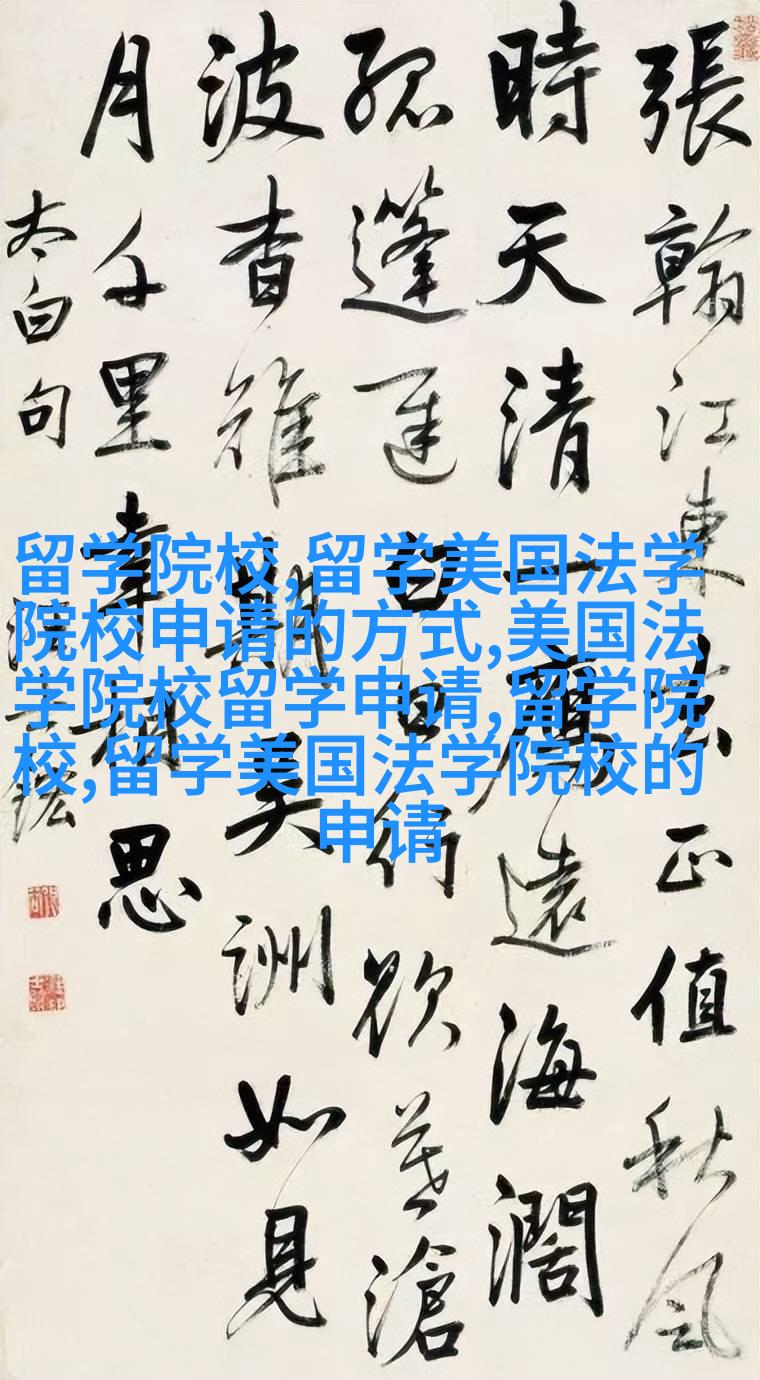 張翰江東去正值秋風
時天清一鴈遠海濶
孤篷遲白日行欲暮滄
波杳難期吴洲如見
月千里幸相思
太白句
留学院校,留学美国法学
院校申请的方式,美国法
学院校留学申请,留学院
校,留学美国法学院校的
申请